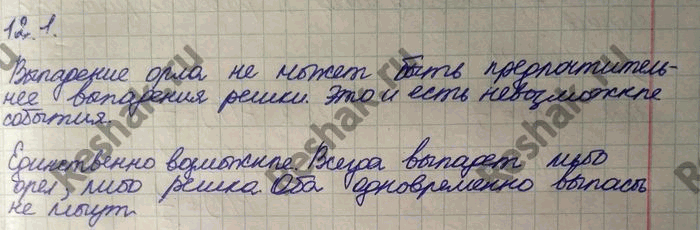 12.1.
Выпадение орла не может быть предпочтитель-
нее выпадения решки. Это и есть невозможные
события.
Единственно возможные. Всегда выпадет либо
орел, либо решка. Оба одновременно выпасть
не могут.
Reshak.ru